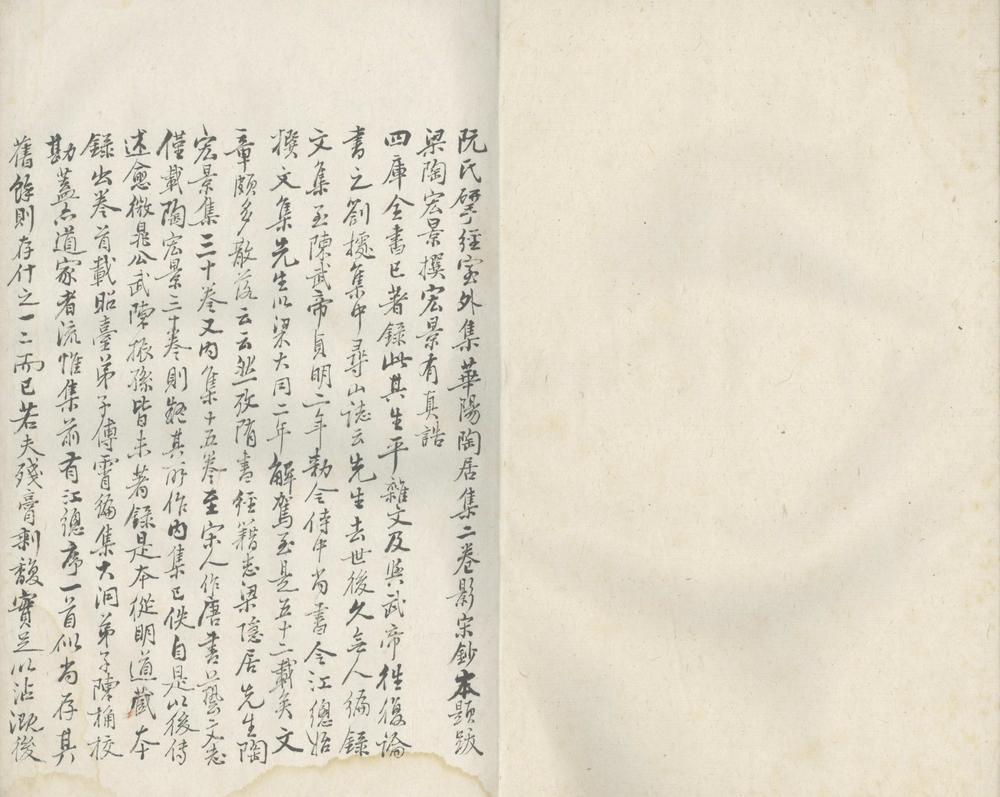 阮氏揅經室外集華陽陶居集二卷影宋鈔本題跋
梁陶宏景撰宏景有真誥
四庫全書已著錄此其生平雜文及與武帝往復論
書之劄攄集中尋山誌云先生去世後久無人編錄
文集至陳武帝貞明二年勅令侍中尚書令江總始
撰文集先生以梁大同二年解駕至是五十二載矣文
章頗多散落云云然攷隋書經籍志梁隱居先生陶
宏景集三十卷又內集十五卷至宋人作唐書藝文志
僅載陶宏景三十卷則疑其所作內集已佚自是以後傳
述愈微晁公武陳振孫皆未著錄是本從明道藏本
錄出卷首載昭臺弟子傅霄編集大洞弟子陳桷校
勘蓋亦道家者流惟集前有江總序一首似尚存其
舊餘則存什之一二而已若夫殘膏剩馥實足以沾溉後